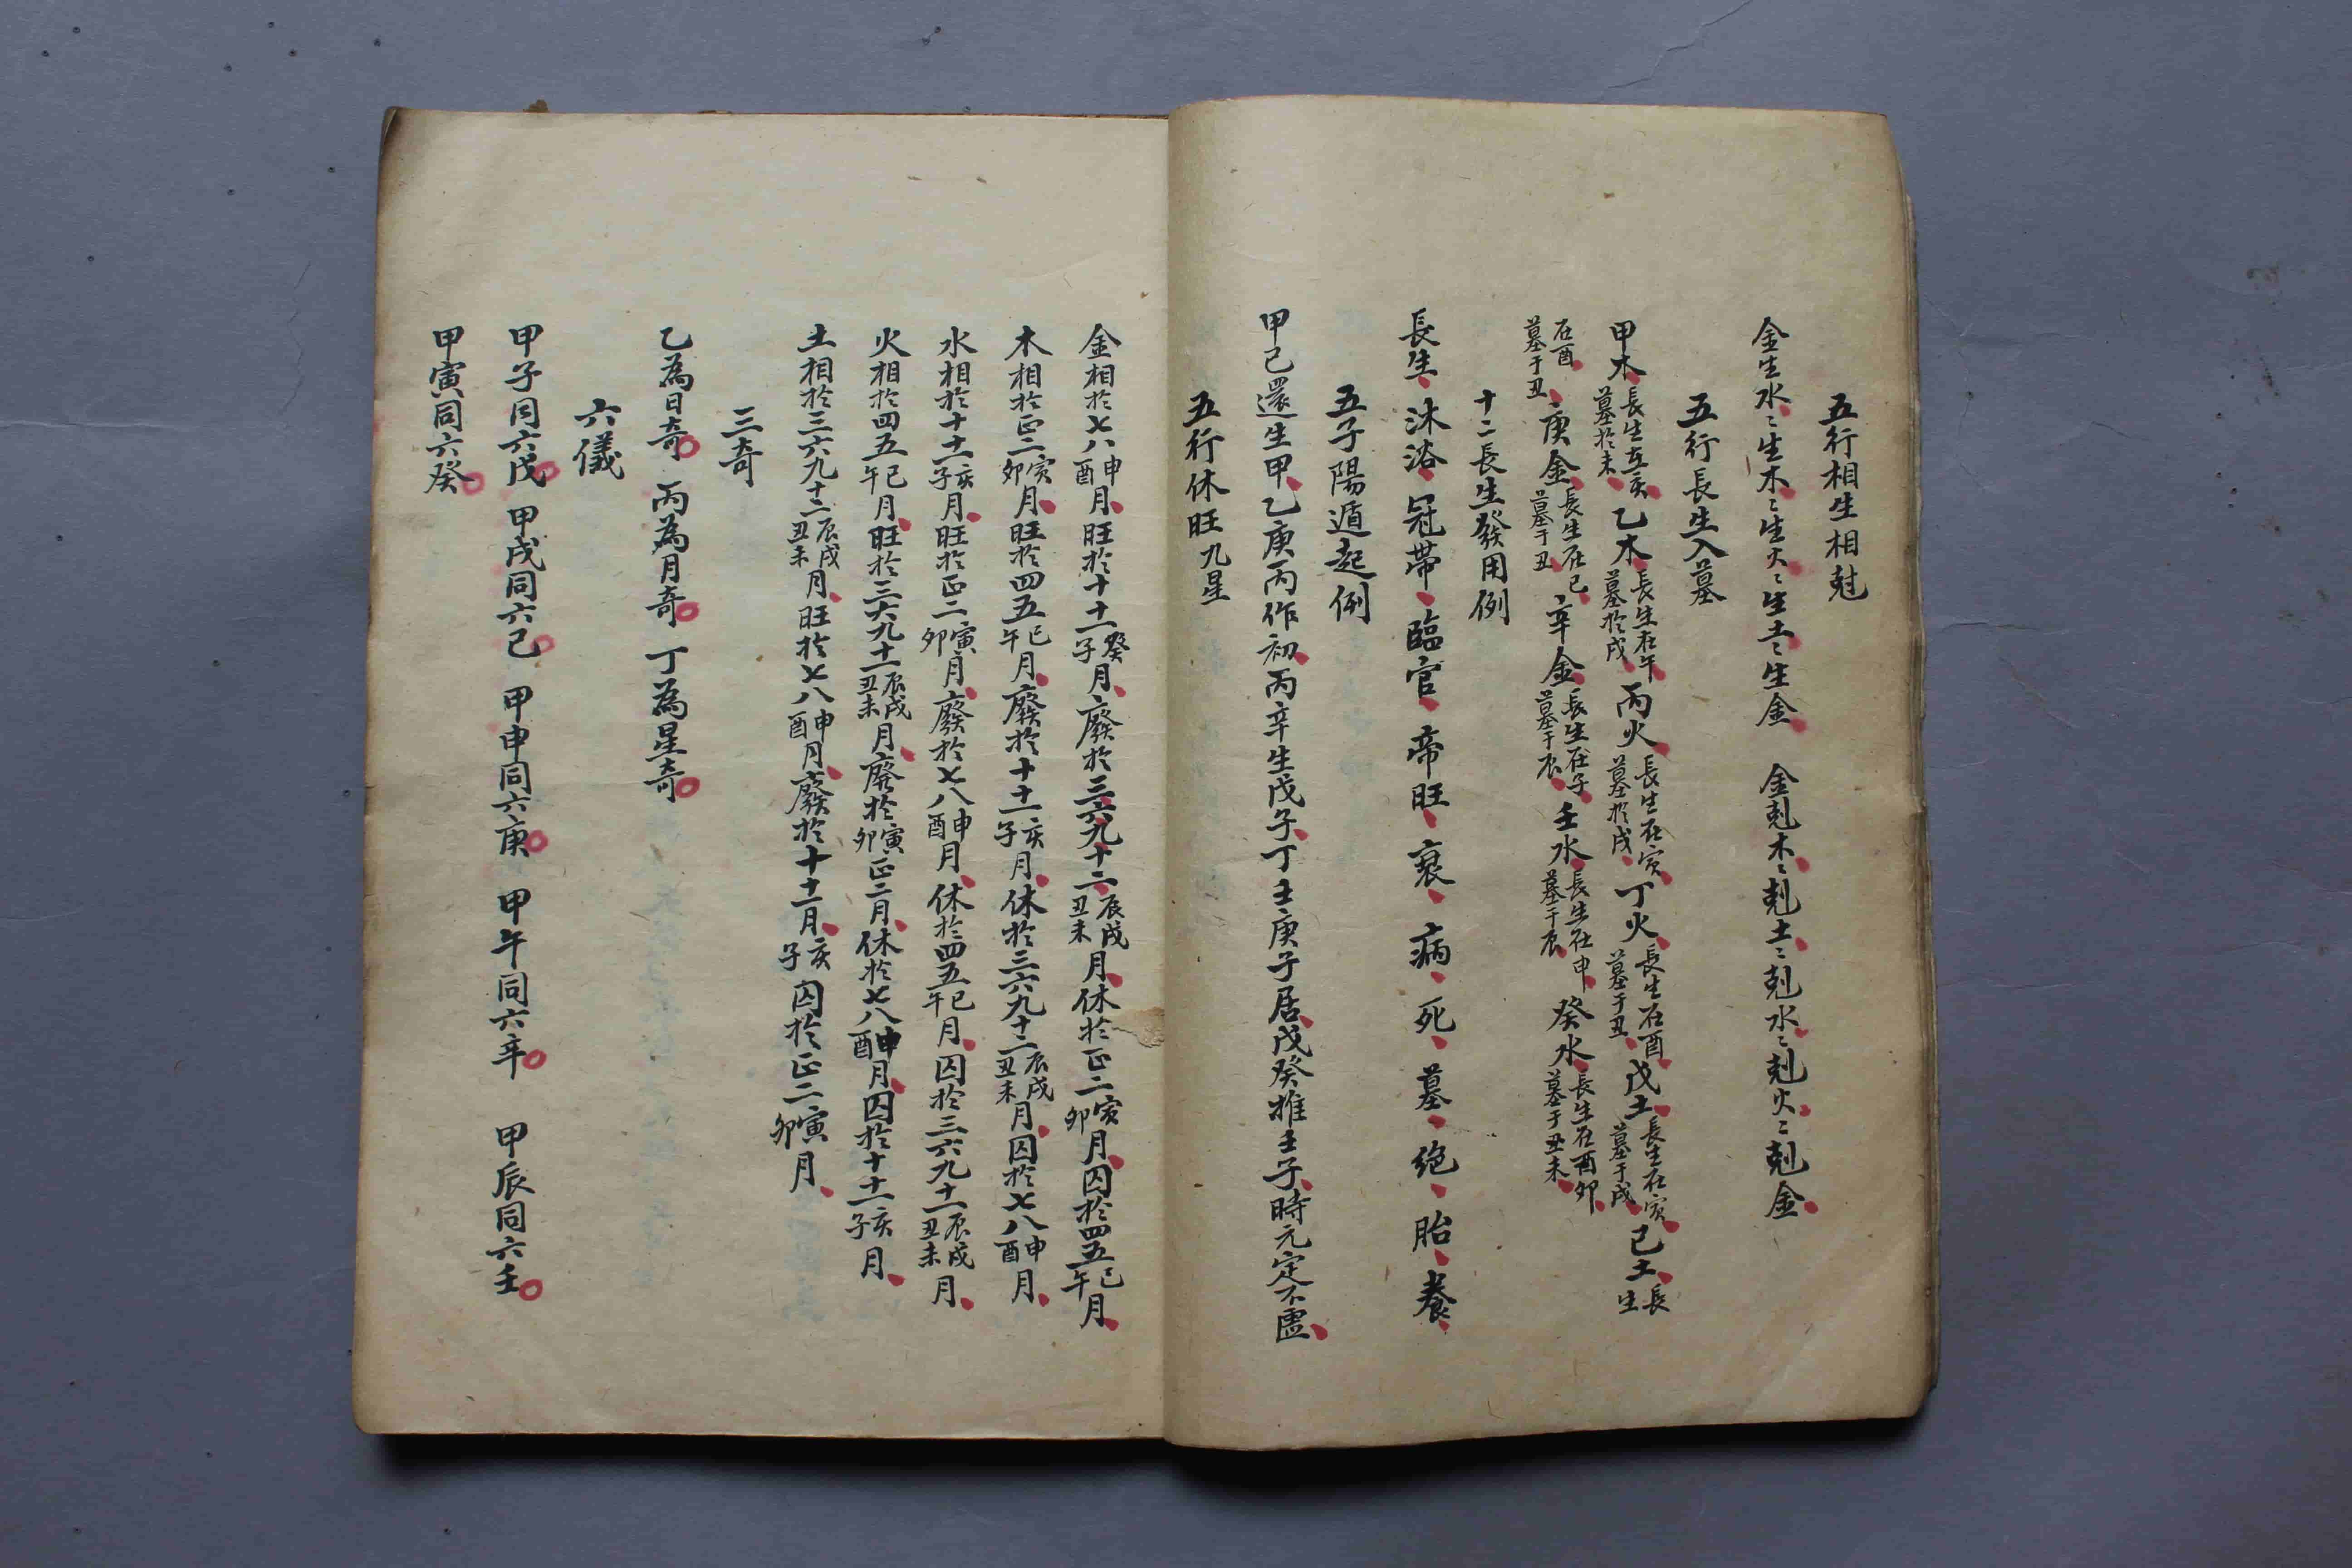 五行相生相尅
金生水〻生木〻生火〻生土〻生金　金剋木〻剋土〻剋水〻剋火〻剋金
五行長生入墓
甲木長生在亥墓於未乙木長生在午墓於戌丙火長生在寅墓於戌丁火長生在酉墓于丑戊土長生在寅墓于戌己土長生
在酉墓于丑庚金長生在巳墓于丑辛金長生在子墓于辰壬水長生在申墓于辰癸水長生在酉卯墓于丑未
十二長生發用例
長生沐浴冠帶臨官帝旺衰病死墓絕胎養
五子陽遁起例
甲己還生甲乙庚丙作初丙辛生戊子丁壬庚子居戊癸推壬子時元定不虛
五行休旺九星
金相於七八申酉月旺於十十一癸子月廢於三六九十二辰戌丑未月休於正二寅卯月囚於四五巳午月
木相於正二寅卯月旺於四五巳午月廢於十十一亥子月休於三六九十二辰戌丑未月囚於七八申酉月
水相於十十一亥子月旺於正二寅卯月廢於七八申酉月休於四五巳午月囚於三六九十二辰戌丑未月
火相於四五巳午月旺於三六九十二辰戌丑未月廢於寅卯正二月休於七八申酉月囚於十十一亥子月
土相於三六九十二辰戌丑未月旺於七八申酉月廢於十十一月亥子囚於正二寅卯月
三奇
乙為日奇　丙為月奇　丁為星奇
六儀
甲子同六戊　甲戌同六己　甲申同六庚　甲午同六辛　甲辰同六壬
甲寅同六癸